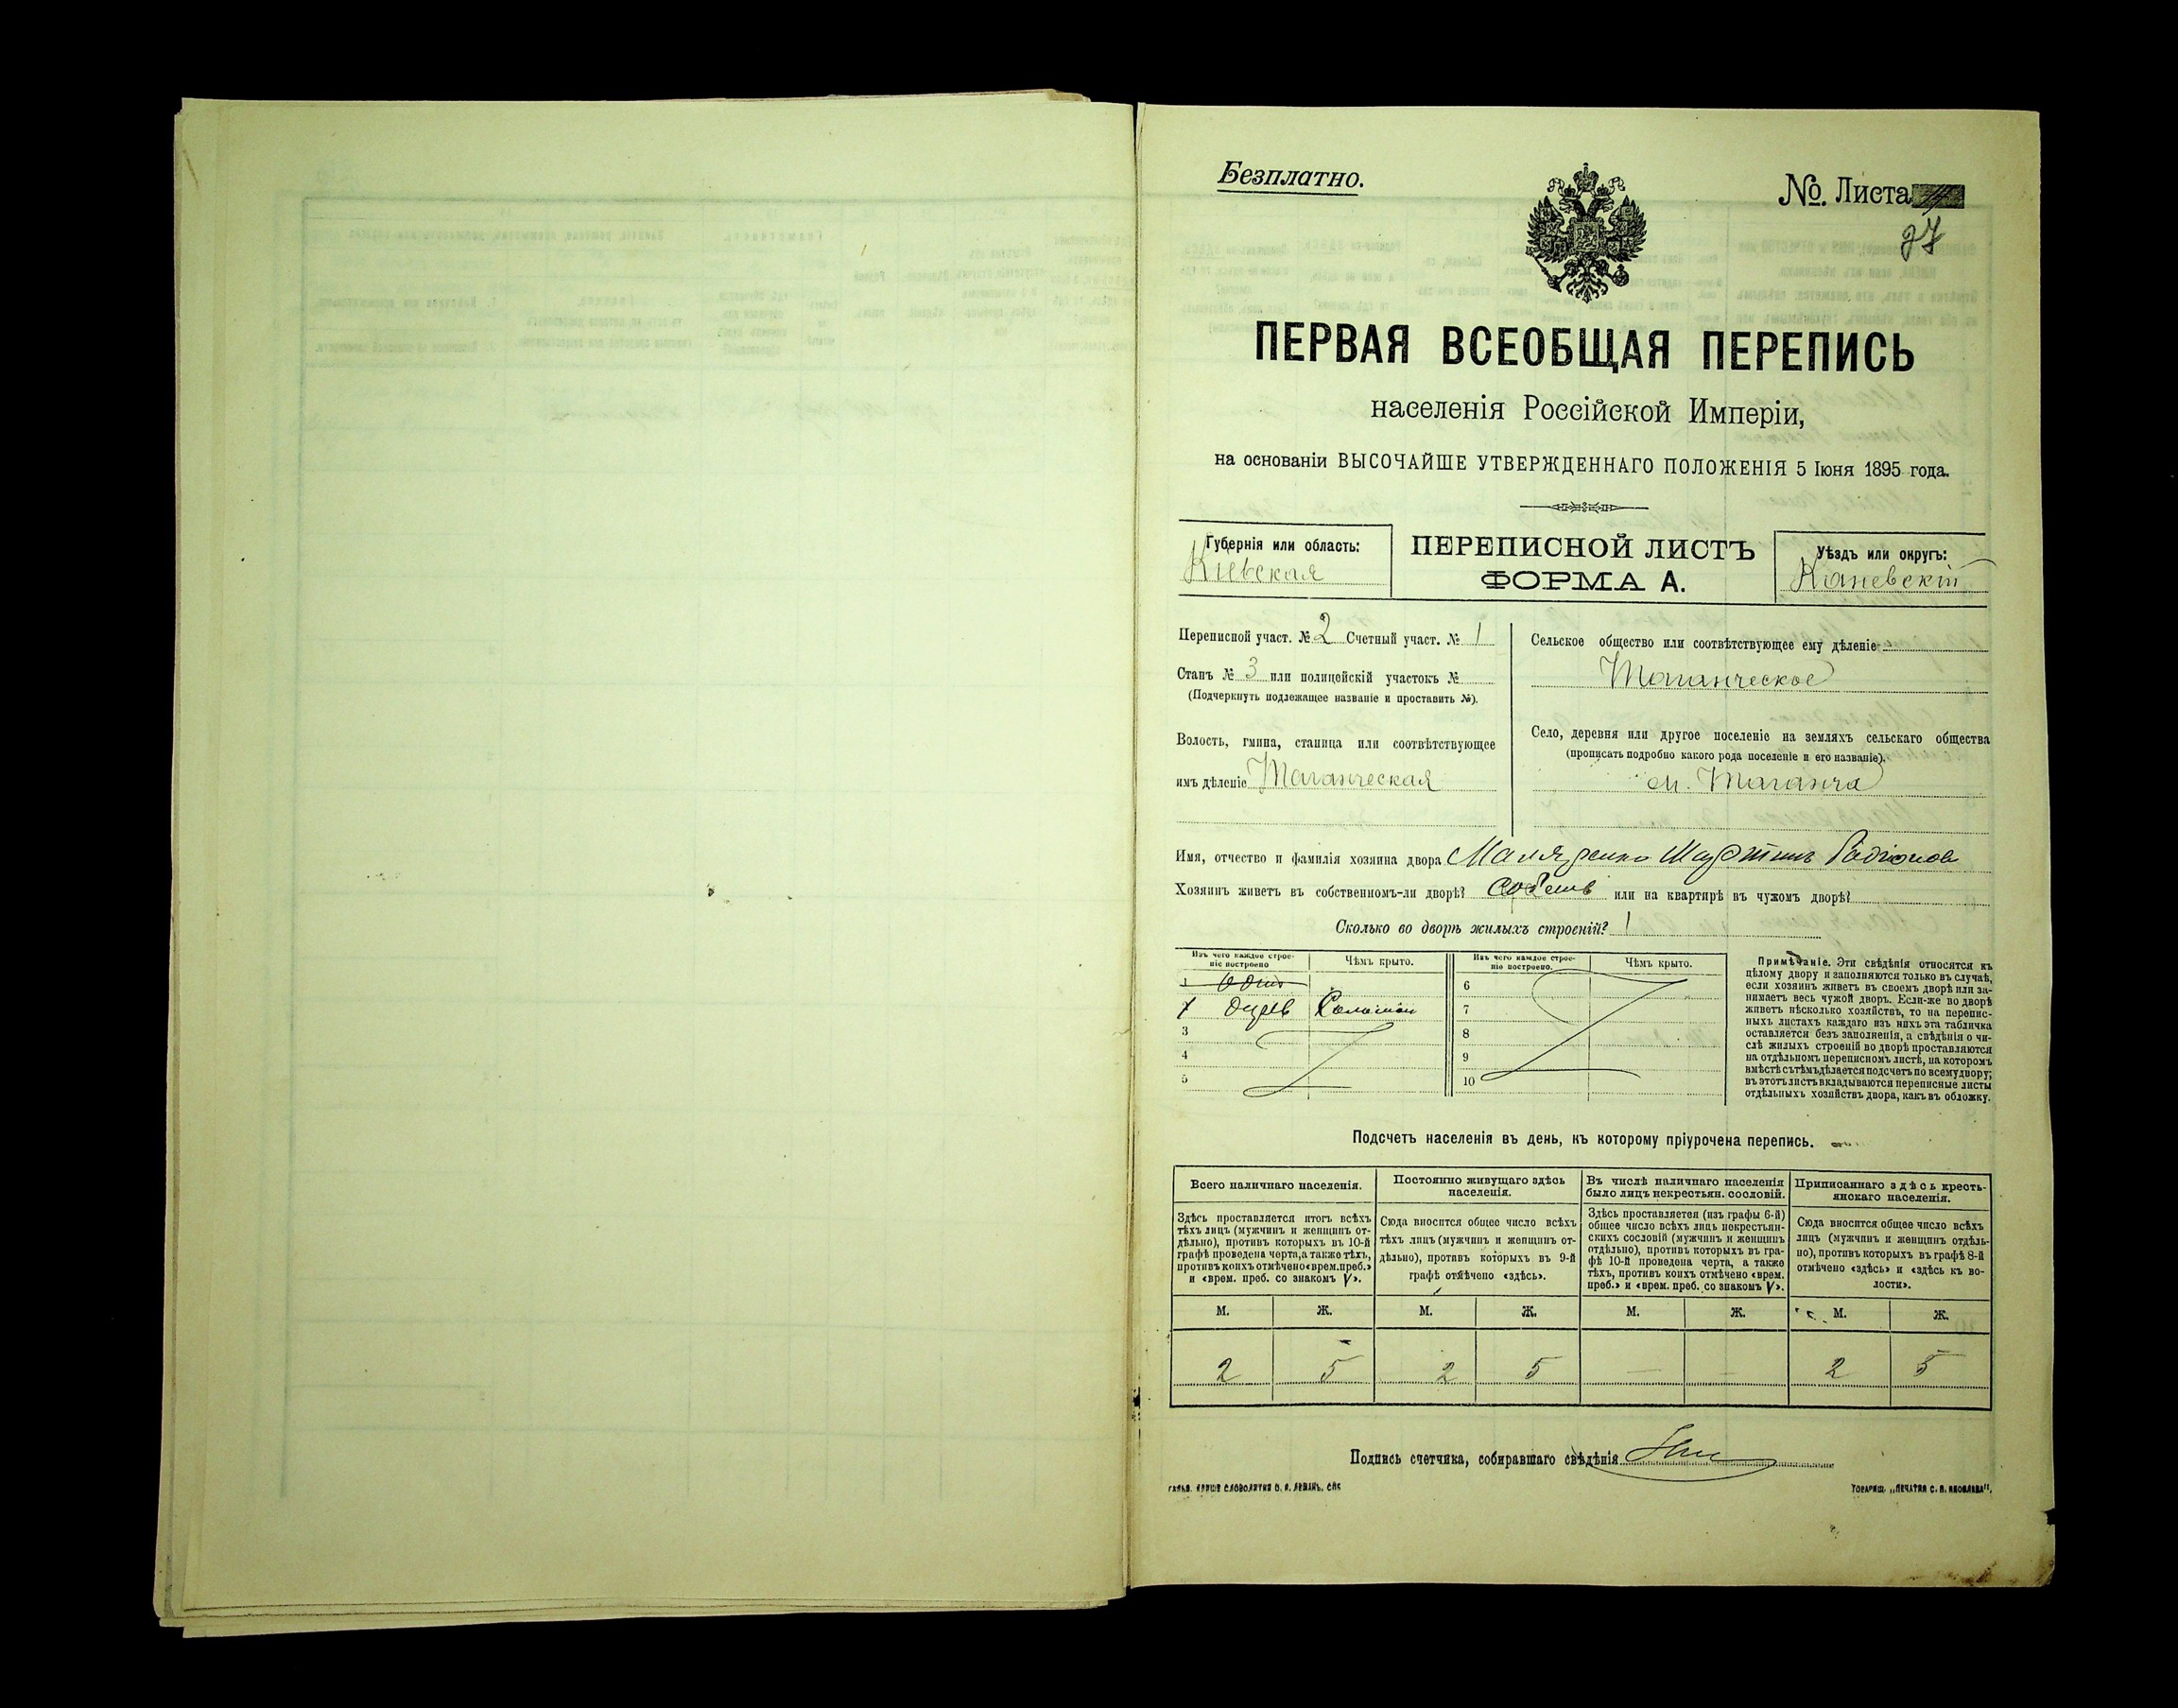 Безплатно.
№. Листа
27
ПЕРВАЯ ВСЕОБЩАЯ ПЕРЕПИСЬ
населенія Россійской Имперіи,
на основаніи ВЫСОЧАЙШЕ УТВЕРЖДЕННАГО ПОЛОЖЕНІЯ 5 Іюня 1895 года.
Губернія или область:
Кіевская
ПЕРЕПИСНОЙ ЛИСТЪ
ФОРМА А.
Уѣздъ или округъ:
Каневскій
Переписной участ. № 2 Счетный участ. № 1
Станъ № 3 или полицейскій участокъ №
(Подчеркнуть подлежащее названіе и проставить №).
Волость, гмина, станица или соотвѣтствующее
имъ дѣленіе Таганческая
Сельское общество или соотвѣтствующее ему дѣленіе
Таганческое
Село, деревня или другое поселеніе на земляхъ сельскаго общества
(прописать подробно какого рода поселеніе и его названіе).
м. Таганча
Имя, отчество и фамилія хозяина двора Маляренко Мартинъ Радіоновъ
Хозяинъ живетъ въ собственномъ-ли дворѣ? или на квартирѣ въ чужомъ дворѣ?
Сколько во дворѣ жилыхъ строеній? 1
Изъ чего каждое строе-
ніе построено
Чѣмъ крыто.
1
Дерев Соломой
3
4
5
Изъ чего каждое строе-
ніе построено.
Чѣмъ крыто.
6
7
8
9
10
Примѣчаніе. Эти свѣдѣнія относятся къ
цѣлому двору и заполняются только въ случаѣ,
если хозяинъ живетъ въ своемъ дворѣ или за-
нимаетъ весь чужой дворъ. Если-же во дворѣ
живетъ нѣсколько хозяйствъ, то на перепис-
ныхъ листахъ каждаго изъ нихъ эта табличка
оставляется безъ заполненія, а свѣдѣнія о чи-
слѣ жилыхъ строеній во дворѣ проставляются
на отдѣльномъ переписномъ листѣ, на которомъ
вмѣстѣ съ тѣмъ дѣлается подсчетъ по всему двору;
въ этотъ листъ вкладываются переписные листы
отдѣльныхъ хозяйствъ двора, какъ въ обложку.
Подсчетъ населенія въ день, къ которому пріурочена перепись.
Всего наличнаго населенія.
Здѣсь проставляется итогъ всѣхъ
тѣхъ лицъ (мужчинъ и женщинъ от-
дѣльно), противъ которыхъ въ 10-й
графѣ проведена черта, а также тѣхъ,
противъ коихъ отмѣчено «врем. преб.»
и «врем. преб. со знакомъ V».
Постоянно живущаго здѣсь
населенія.
Сюда вносится общее число всѣхъ
тѣхъ лицъ (мужчинъ и женщинъ от-
дѣльно), противъ которыхъ въ 9-й
графѣ отмѣчено «здѣсь».
Въ числѣ наличнаго населенія
было лицъ некрестьян. сословій.
Здѣсь проставляется (изъ графы 6-й)
общее число всѣхъ лицъ некрестьян-
скихъ сословій (мужчинъ и женщинъ
отдѣльно), противъ которыхъ въ гра-
фѣ 10-й проведена черта, а также
тѣхъ, противъ коихъ отмѣчено «врем.
преб.» и «врем. преб. со знакомъ V».
Приписаннаго здѣсь кресть-
янскаго населенія.
Сюда вносится общее число всѣхъ
лицъ (мужчинъ и женщинъ отдѣль-
но), противъ которыхъ въ графѣ 8-й
отмѣчено «здѣсь» и «здѣсь къ во-
лости».
М. Ж. М. Ж. М. Ж. М. Ж.
2 5 2 5 — — 2 5
Подпись счетчика, собиравшаго свѣдѣнія
ГАЛЬВ. КЛИШЕ СЛОВОЛИТНИ О. И. ЛЕМАНЪ. СПБ
ТОВАРИЩ. „ПЕЧАТНЯ С. П. ЯКОВЛЕВА".